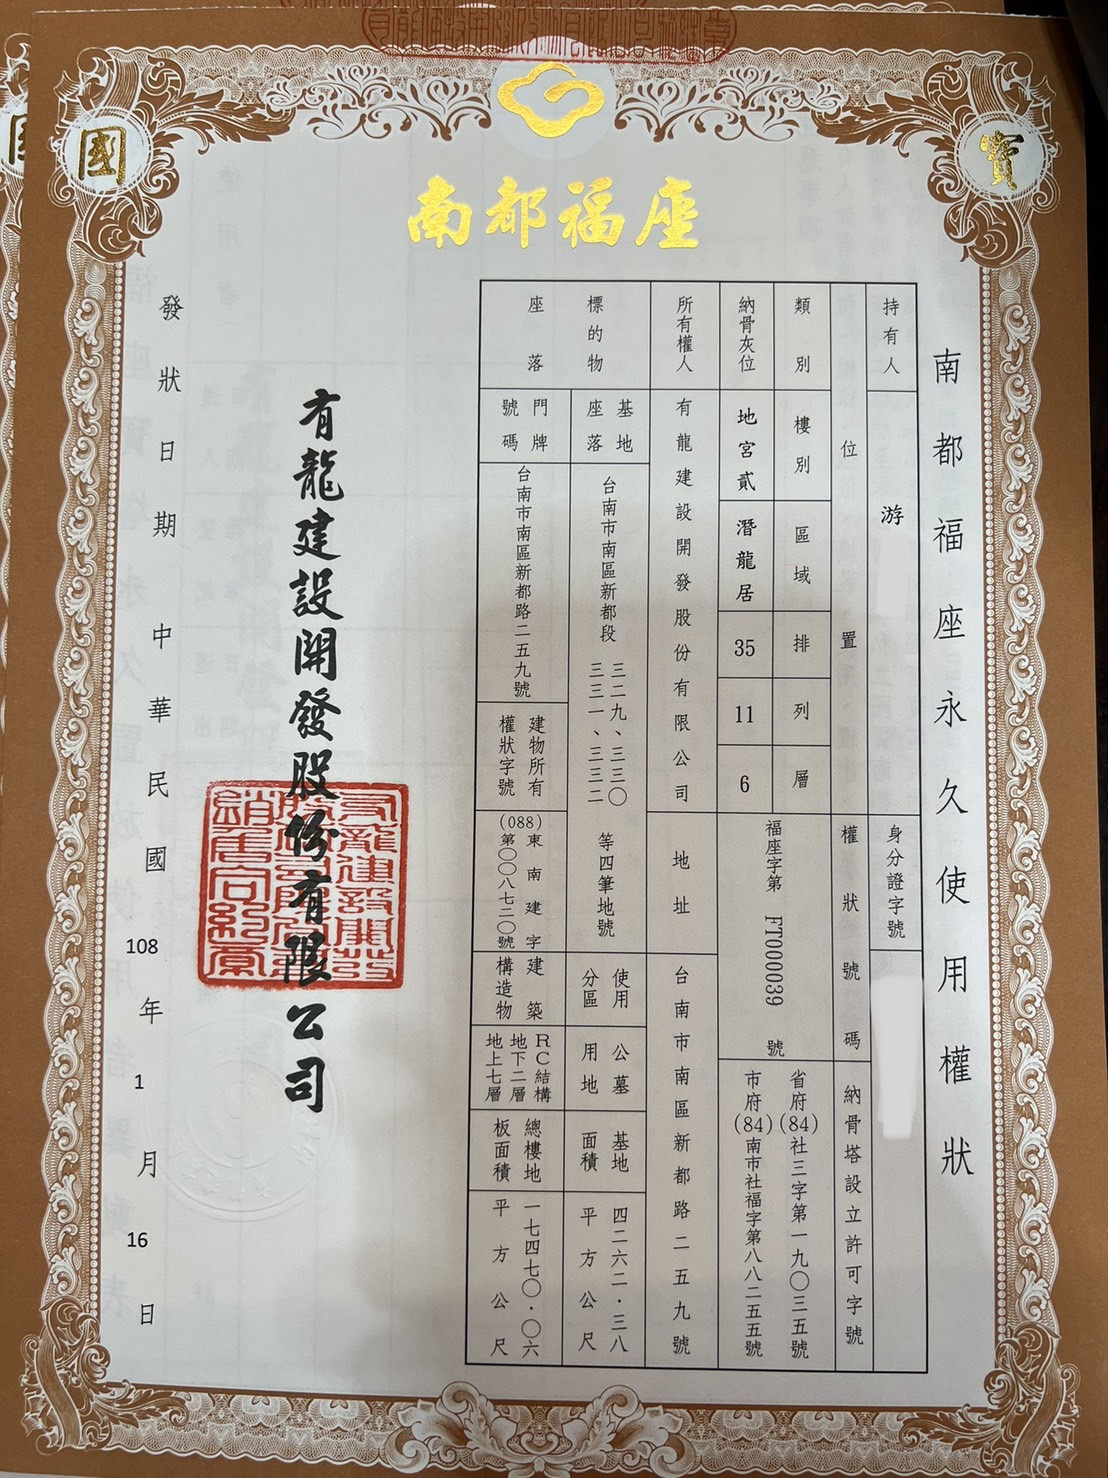 國
寶
南都福座
南都福座永久使用權狀
持有人
游
身分證字號
位置
權狀號碼
納骨塔設立許可字號
類別
樓別
區域
排
列
層
納骨灰位
地宮貳
潛龍居
35
11
6
福座字第 FT000039 號
省府(84)社三字第一九〇三五號
市府(84)南市社福字第八八二五五號
所有權人
有龍建設開發股份有限公司
地址
台南市南區新都路二五九號
標的物
座落
基地
座落
台南市南區新都段
三二九、三三〇
三三一、三三二
等四筆地號
使用
分區
公墓
用地
基地
面積
四二六二.三八
平方公尺
門牌
號碼
台南市南區新都路二五九號
建物所有
權狀字號
(088)東南建字
第〇〇八七二〇號
建築
構造物
RC結構
地下二層
地上七層
總樓地
板面積
一七四七〇.〇六
平方公尺
有龍建設開發股份有限公司
發狀日期 中華民國 108 年 1 月 16 日